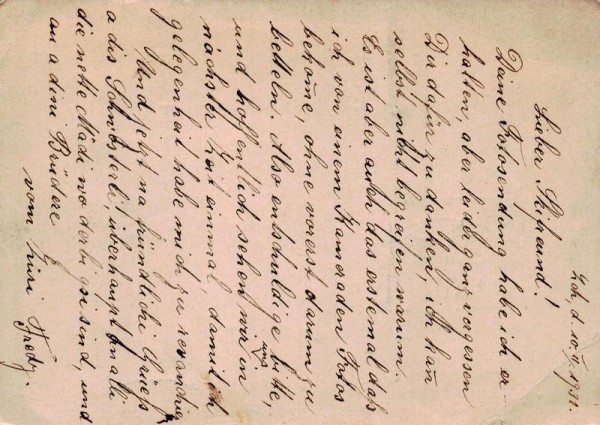 Zch, d. 10. II. 1931.
Lieber Skifreund!
Deine Fotosendung habe ich er-
halten, aber leider ganz vergessen
Dir dafür zu danken, ich kan̄
selbst nicht begreifen warum.
Es ist aber auch das erstemal das
ich von einem Kameraden Fotos
bekom̄e, ohne vorerst darum zu
betteln. Also entschuldige bitte,
und hoffentlich sehen wir uns in
nächster Zeit einmal, damit ich
gelegenheit habe mich zu revanchie
Und jetzt na fründlichi Grüess
a dis Schwösterli, überhaupt an alli
die nette Mädi wo derbi gsi sind, und
an a dini Brüedere
vom Fredy.